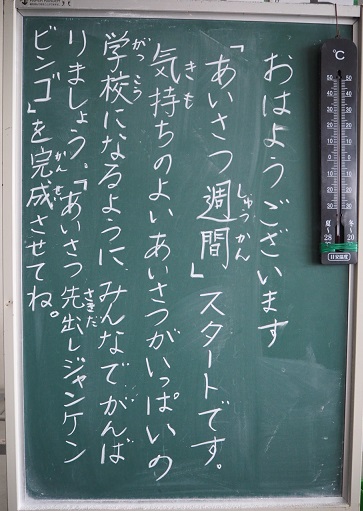 おはようございます
「あいさつ週間」スタートです。
しゅうかん
気持ちのよいあいさつがいっぱいの
きも
学校になるように、みんなでがんば
がっこう
りましょう。「あいさつ先出しジャンケン
さきだ
ビンゴ」を完成させてね。
かんせい
℃
50 50
40 40
30 30
20 20
10 10
0 0
10 10
20 20
30 30
夏 28
冬 20
目安温度